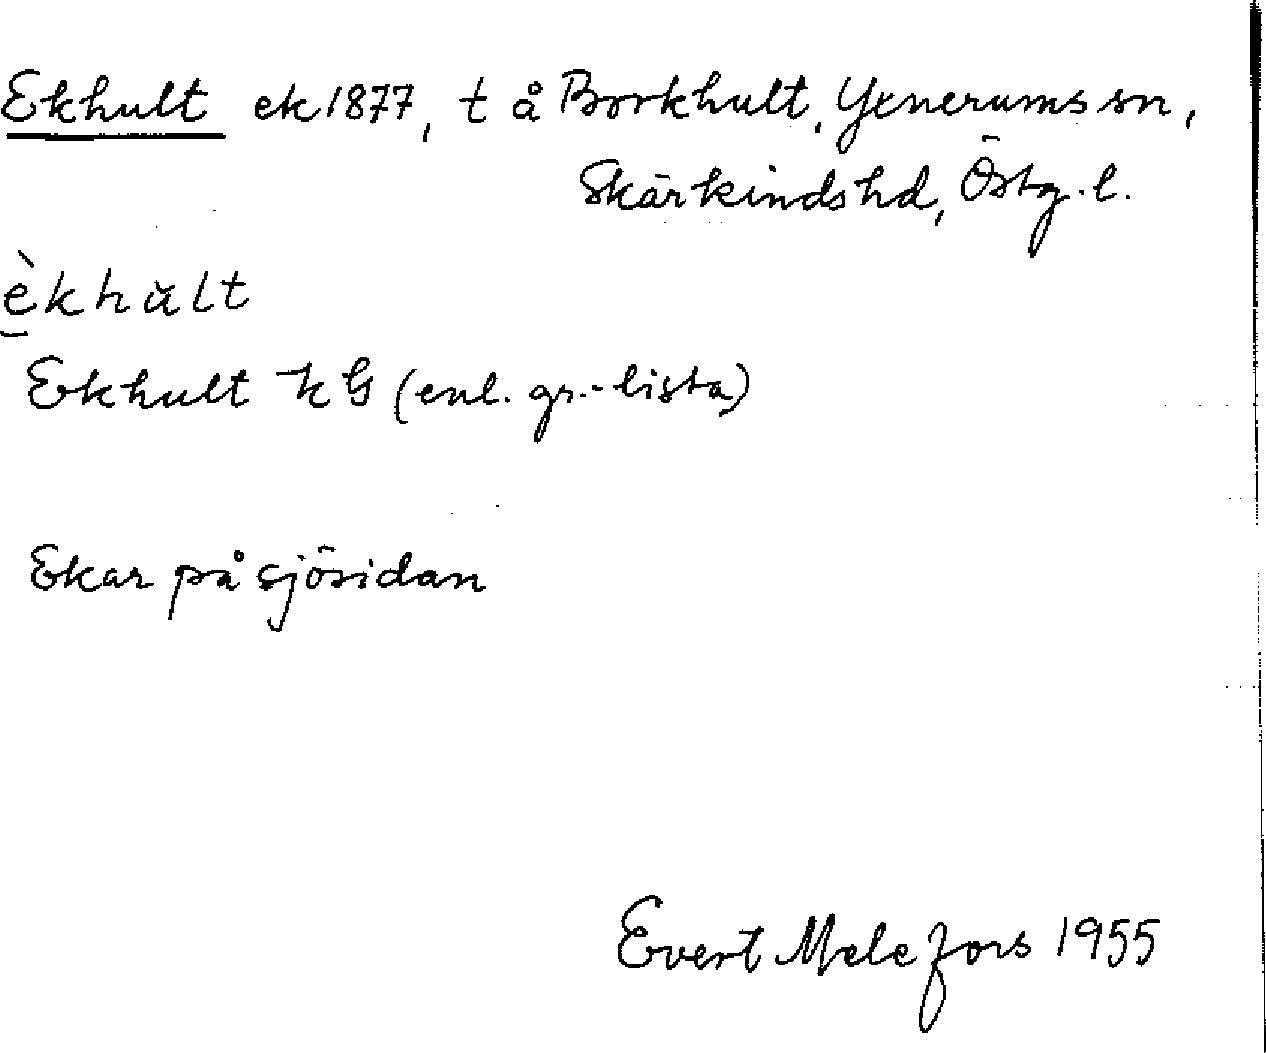 Ekhult ek 1877, t å Borkhult, Yxnerums sn,
Skärkinds hd, Östg. l.
èkhult
Ekhult (enl. gr.-lista)
Ekar på sjösidan
Evert Melefors 1955